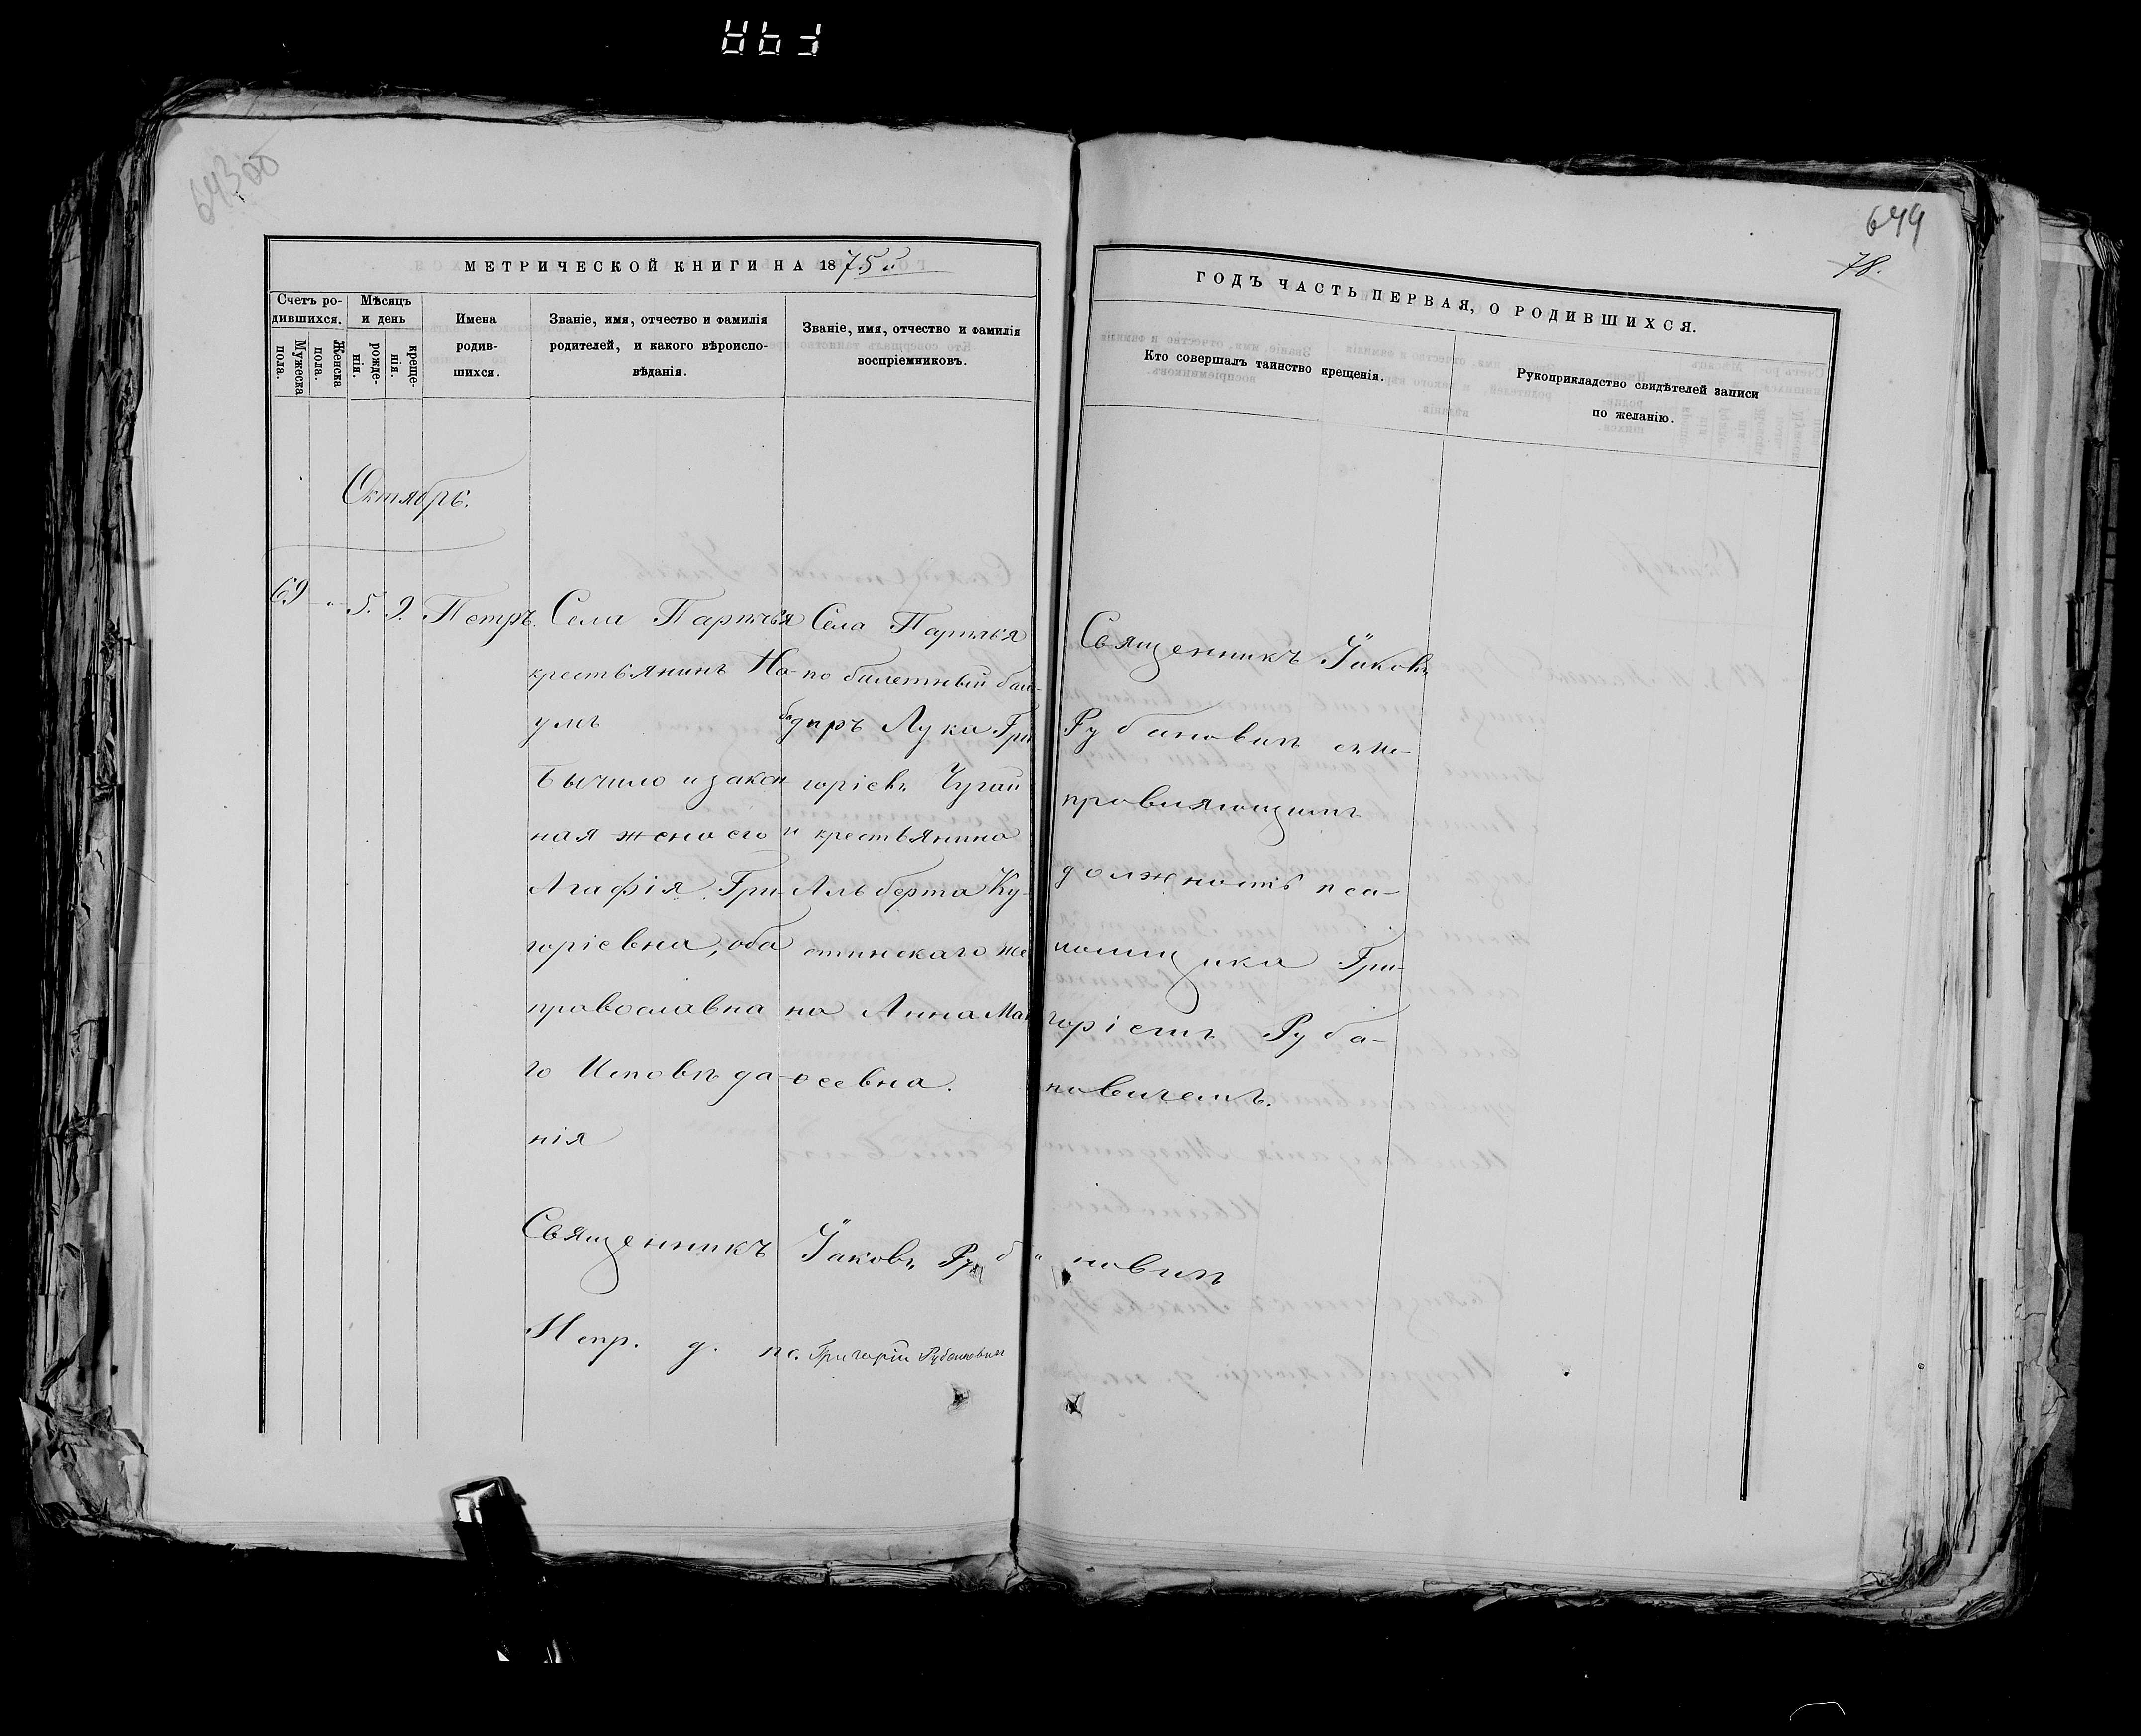 649
78.
МЕТРИЧЕСКОЙ КНИГИ НА 1875й
ГОДЪ ЧАСТЬ ПЕРВАЯ, О РОДИВШИХСЯ.
Счетъ ро-
дившихся.
Мужеска
пола.
Женска
пола.
Мѣсяцъ
и день
рожде-
нія.
креще-
нія.
Имена
родив-
шихся.
Званіе, имя, отчество и фамилія
родителей, и какого вѣроиспо-
вѣданія.
Званіе, имя, отчество и фамилія
воспріемниковъ.
Кто совершалъ таинство крещенія.
Рукоприкладство свидѣтелей записи
по желанію.
Октябрь.
69 - 5. 9. Петръ.
Села
крестьянинъ На-
умъ
Бычило и закон
ная жена его
Агафія Гри-
горіевна, оба
православна
го Исповѣда-
нія
Села
по билетный бом-
бадиръ Лука Гри
горіевъ
и крестьянина
Альберта Ку-
стинскаго же
на Анна Мат
осевна.
Священникъ Іаковъ
Рубановичъ съ ис-
правляющимъ
должность пса-
ломщика Гри-
горіемъ Руба-
новичемъ.
Священникъ Іаковъ Рубановичъ
Испр. д. пс. Григорій Рубановичъ